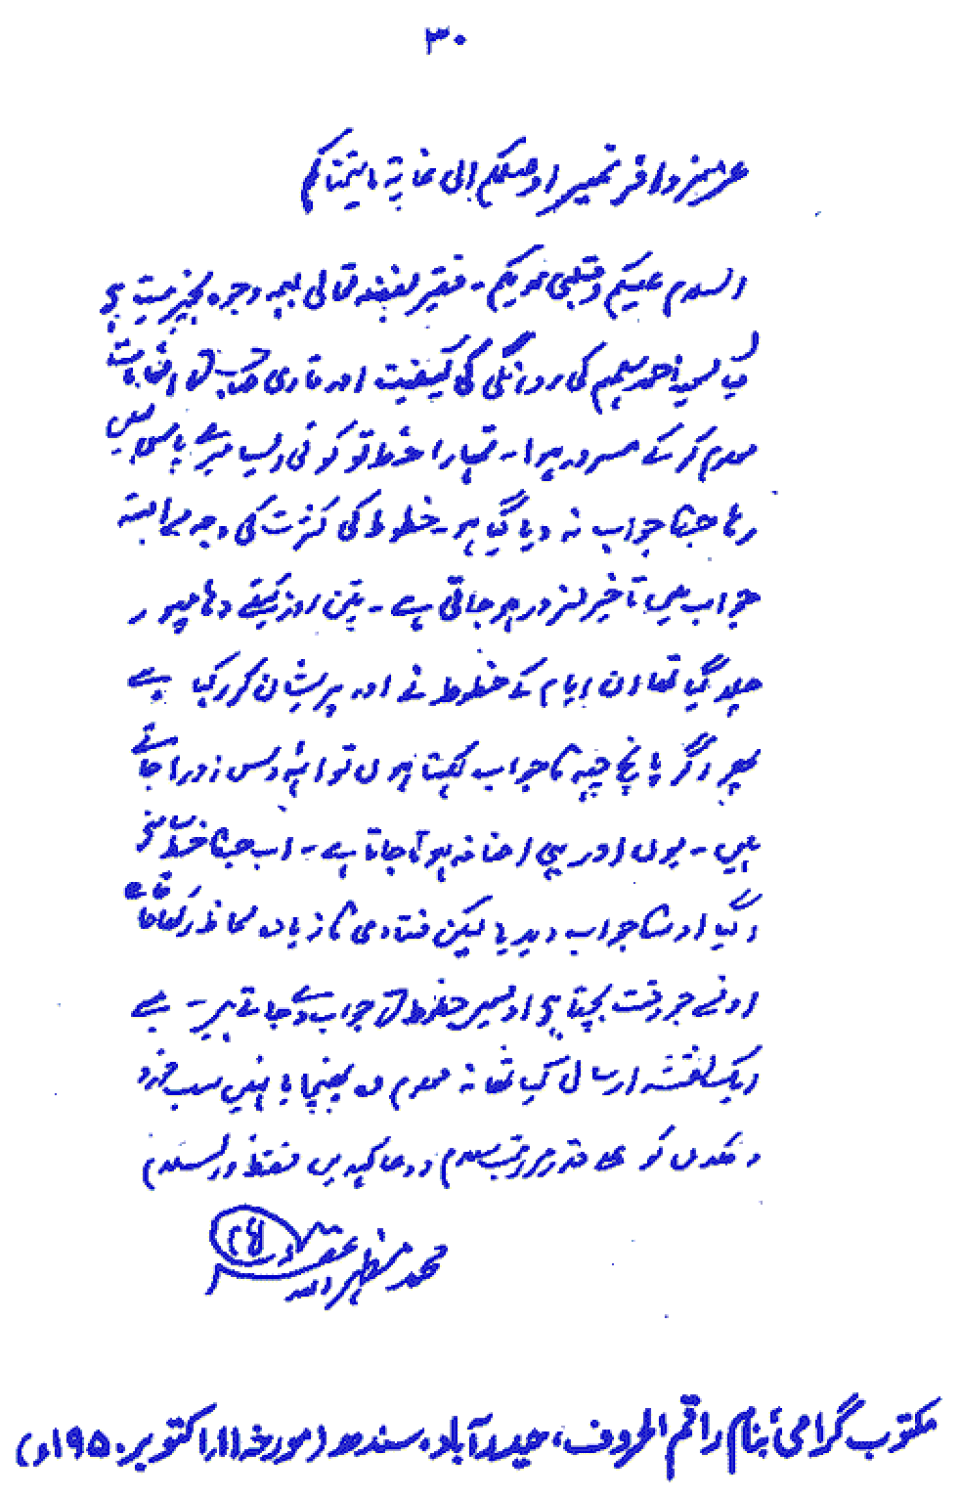 ۳۰
عزیز وافر تمیز اوصلکم الی غایۃ مایتمناکم
السلام علیکم وقلبی لدیکم۔ فقیر بفضلہ تعالیٰ بہمہ وجوہ بخیریت ہے
میاں سعید احمد سلیم کی روانگی کی کیفیت اور قاری صاحب کا
معلوم کر کے مسرور ہوا۔ تمہارا خط تو کوئی ایسا میرے پاس نہیں
رہا جسکا جواب نہ دیا گیا ہو۔ خطوط کی کثرت کی وجہ سے البتہ
جواب میں تاخیر ضرور ہو جاتی ہے۔ تین روز کیلئے دہامپور
چلا گیا تھا ان ایام کے خطوط نے اور پریشان کر رکھا ہے
پھر اگر پانچ چھ کا جواب لکھتا ہوں تو آٹھ دس اور آ جاتے
ہیں۔ یوں اور بھی اضافہ ہوتا جاتا ہے۔ اب جسکا خط سامنے
آ گیا اوسکا جواب دیدیا لیکن فتاوی کا زیادہ لحاظ رکھا جاتا ہے
اونسے جو وقت بچتا ہے اوسمیں خطوط کے جواب دئے جاتے ہیں۔
ایک نقشہ ارسال کیا تھا نہ معلوم وہ پہنچا یا نہیں سب خورد
و کلاں کو علی قدر مراتب سلام و دعا کہدیں فقط والسلام
محمد مظہر اللہ غفرلہ
مکتوب گرامی بنام راقم الحروف، حیدرآباد، سندھ (مورخہ ۱۱ اکتوبر ۱۹۵۰ء)